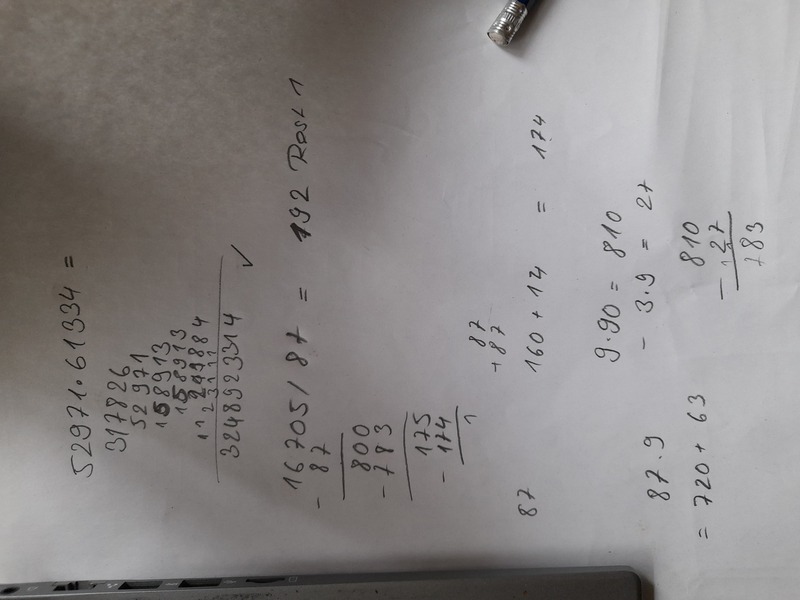 52971 · 61334 =
317826
52971
158913
158913
211884
3248923314 ✓
16705 / 87 = 192 Rest 1
- 87
800
- 783
175
- 174
1
87
+ 87
87 160 + 14 = 174
87 · 9 9 · 90 = 810
= 720 + 63 - 3 · 9 = 27
810
- 27
783